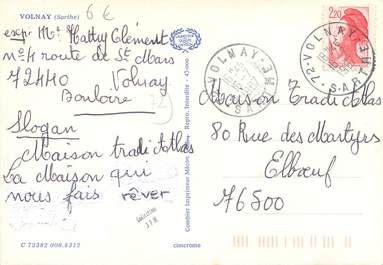 VOLNAY (Sarthe)
6 €
exp Mr Hattuy Clément
n°4 route de St Mars
72440 Volnay
Bouloire
72
Slogan
Maison tradi Atlas
La Maison qui
nous fais rêver
C 72382 008.8312
cimcrome
Combier Imprimeur Mâcon
Repro. Interdite - 45-000
VOLNAY
72 - SARTHE
2,20
Maison Tradi Atlas
80 Rue des Martyrs
Elboeuf
76500